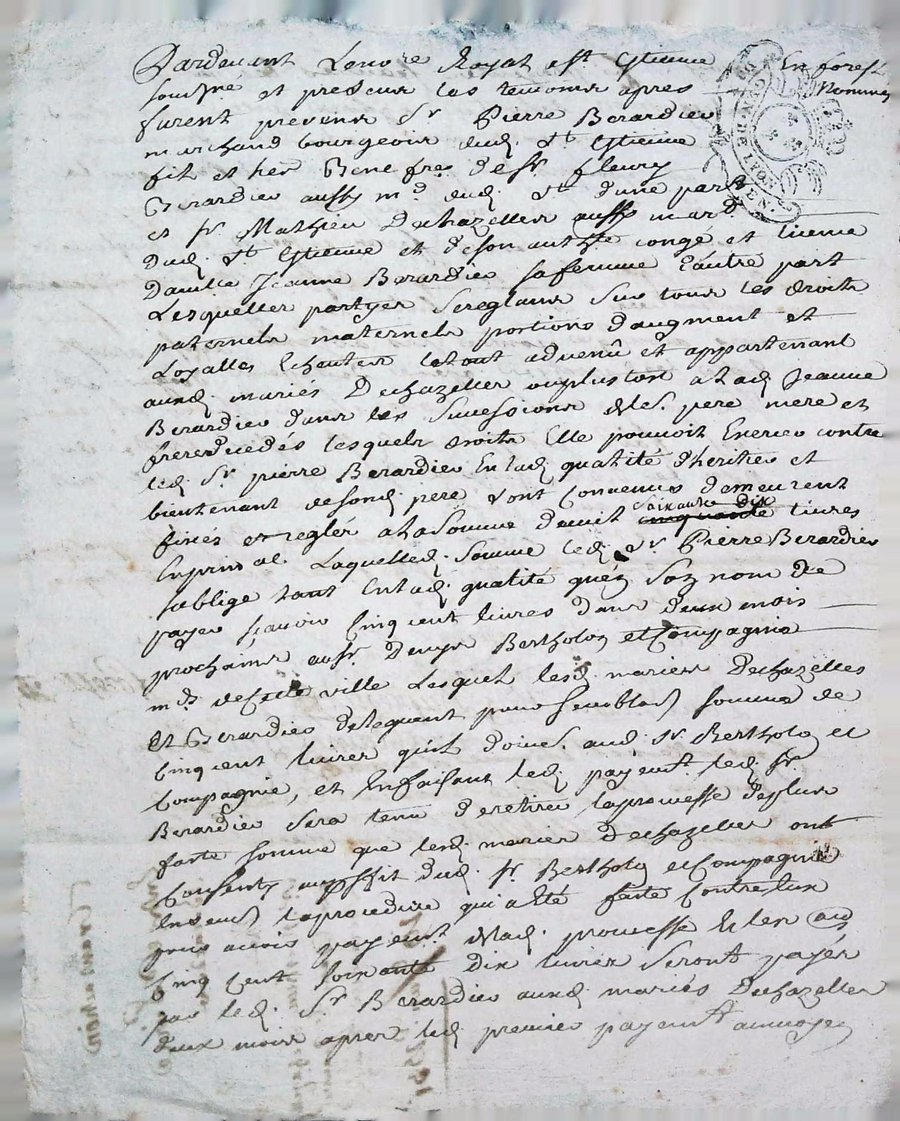 Pardevant Le no.re Royal a St. Etienne En forest
sousne et presence les temoins apres Nommes
furent presens Sr. Pierre Berardier
marchand bourgeois dud. St. Etienne
fils et her. Benef.re de Sr. fleury
Berardier aussy m.d dud. St. dune part
et Sr. Mathieu Dechazelles aussy mar.d
Dud. St. Etienne et de son autt.e congé et licence
Dam.lle Jeanne Berardier sa femme L'autre part
Lesquelles partyes Sereglans Sur tous les droits
paternels maternels portions d'augment et
Loyalles Echeutes le tout advenû et appartenant
auxd. mariés Dechazelles ou plustost a lad. Jeanne
Berardier dans les Successions desd. pere mere et
freres decedés lesquels droits Elle pouvoit Exercer contre
led. Sr. pierre Berardier En lad. qualité d'heritier et
bientenant de sond. pere Sont Convenus demeurent
fixés et reglés a la somme de mil Soixante dix cinquante livres
En principal. Laquelled. somme led. Sr. Pierre Berardier
s'oblige tant En lad. qualité qu'en Son nom de
payer sçavoir Cinq cent livres dans deux mois
prochains au Sr. Denys Bertholon et Compagnie
m.ds de cette ville Lesquels lesd. mariés Dechazelles
et Berardier deleguent pour semblable somme de
Cinq cent livres qu'ils doivent aud. Sr. Bertholon et
Compagnie, et En faisant led. payem.t led. Sr.
Berardier sera tenu de retirer la promesse de plus
forte somme que lesd. mariés Dechazelles ont
Consenty au proffit dud. Sr. Bertholon et Compagnie
Ensemble la procedure qui a Eté faite Contre Eux
pour avoir payem.t de lad. promesse Et les au.es
Cinq Cent soixante Dix livres Seront payés
par led. Sr. Berardier auxd. mariés Dechazelles
deux mois apres led. premier payem.t
GEN. DE LYON